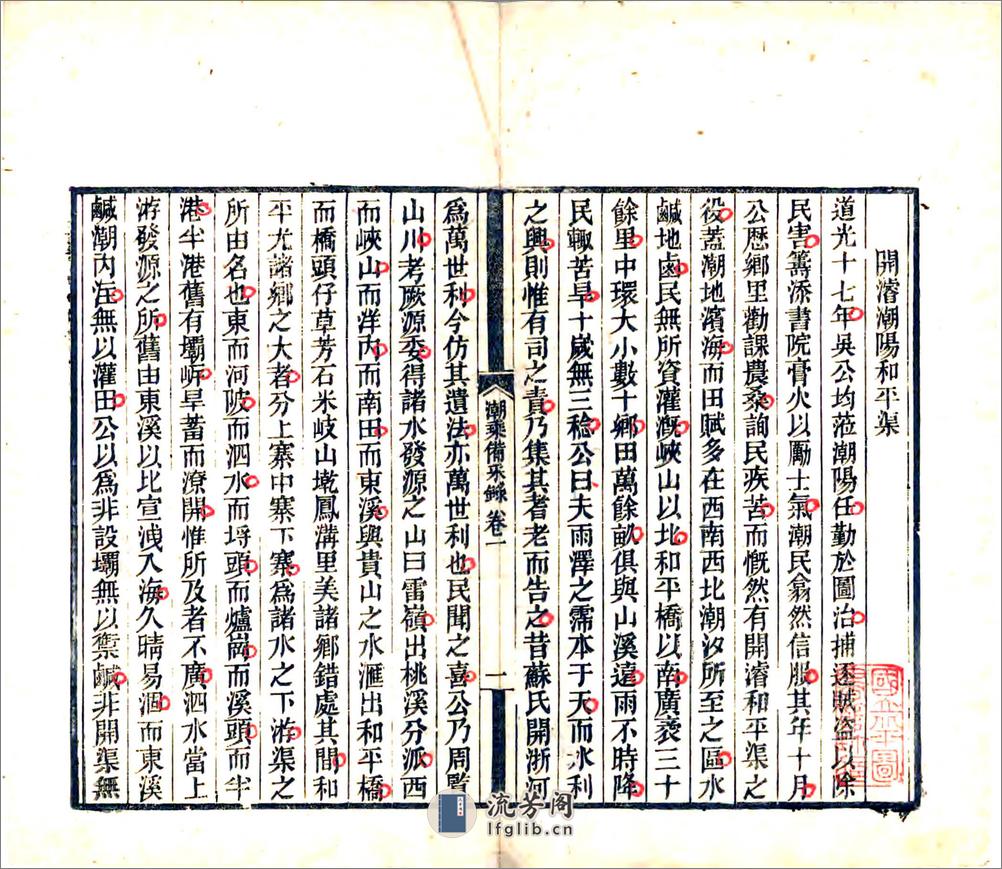 開濬潮陽和平渠
道光十七年吳公均蒞潮陽任勤於圖治捕逐賊盜以除
民害籌添書院膏火以勵士氣潮民翕然信服其年十月
公歷鄉里勸課農桑詢民疾苦而慨然有開濬和平渠之
役葢潮地濱海而田賦多在西南西北潮汐所至之區水
鹹地鹵民無所資灌溉峽山以北和平橋以南廣袤三十
餘里中環大小數十鄉田萬餘畝俱與山溪遠雨不時降
民輙苦旱十歲無三稔公曰夫雨澤之霈本于天而水利
之興則惟有司之責乃集其耆老而告之昔蘇氏開浙河
潮乘備采錄 卷一
一
爲萬世利今仿其遺法亦萬世利也民聞之喜公乃周覽
山川考厥源委得諸水發源之山曰雷嶺出桃溪分派西
而峽山而洋內而南田而東溪與貴山之水滙出和平橋
而橋頭仔草芳石米岐山墘鳳溝里美諸鄉錯處其間和
平尤諸鄉之大者分上寨中寨下寨爲諸水之下游渠之
所由名也東而河陂而泗水而埒頭而爐崗而溪頭而半
港半港舊有壩㟁旱蓄而潦開惟所及者不廣泗水當上
游發源之所舊由東溪以比宣洩入海久晴易涸而東溪
鹹潮內注無以灌田公以爲非設壩無以禦鹹非開渠無
流芳阁
lfglib.cn